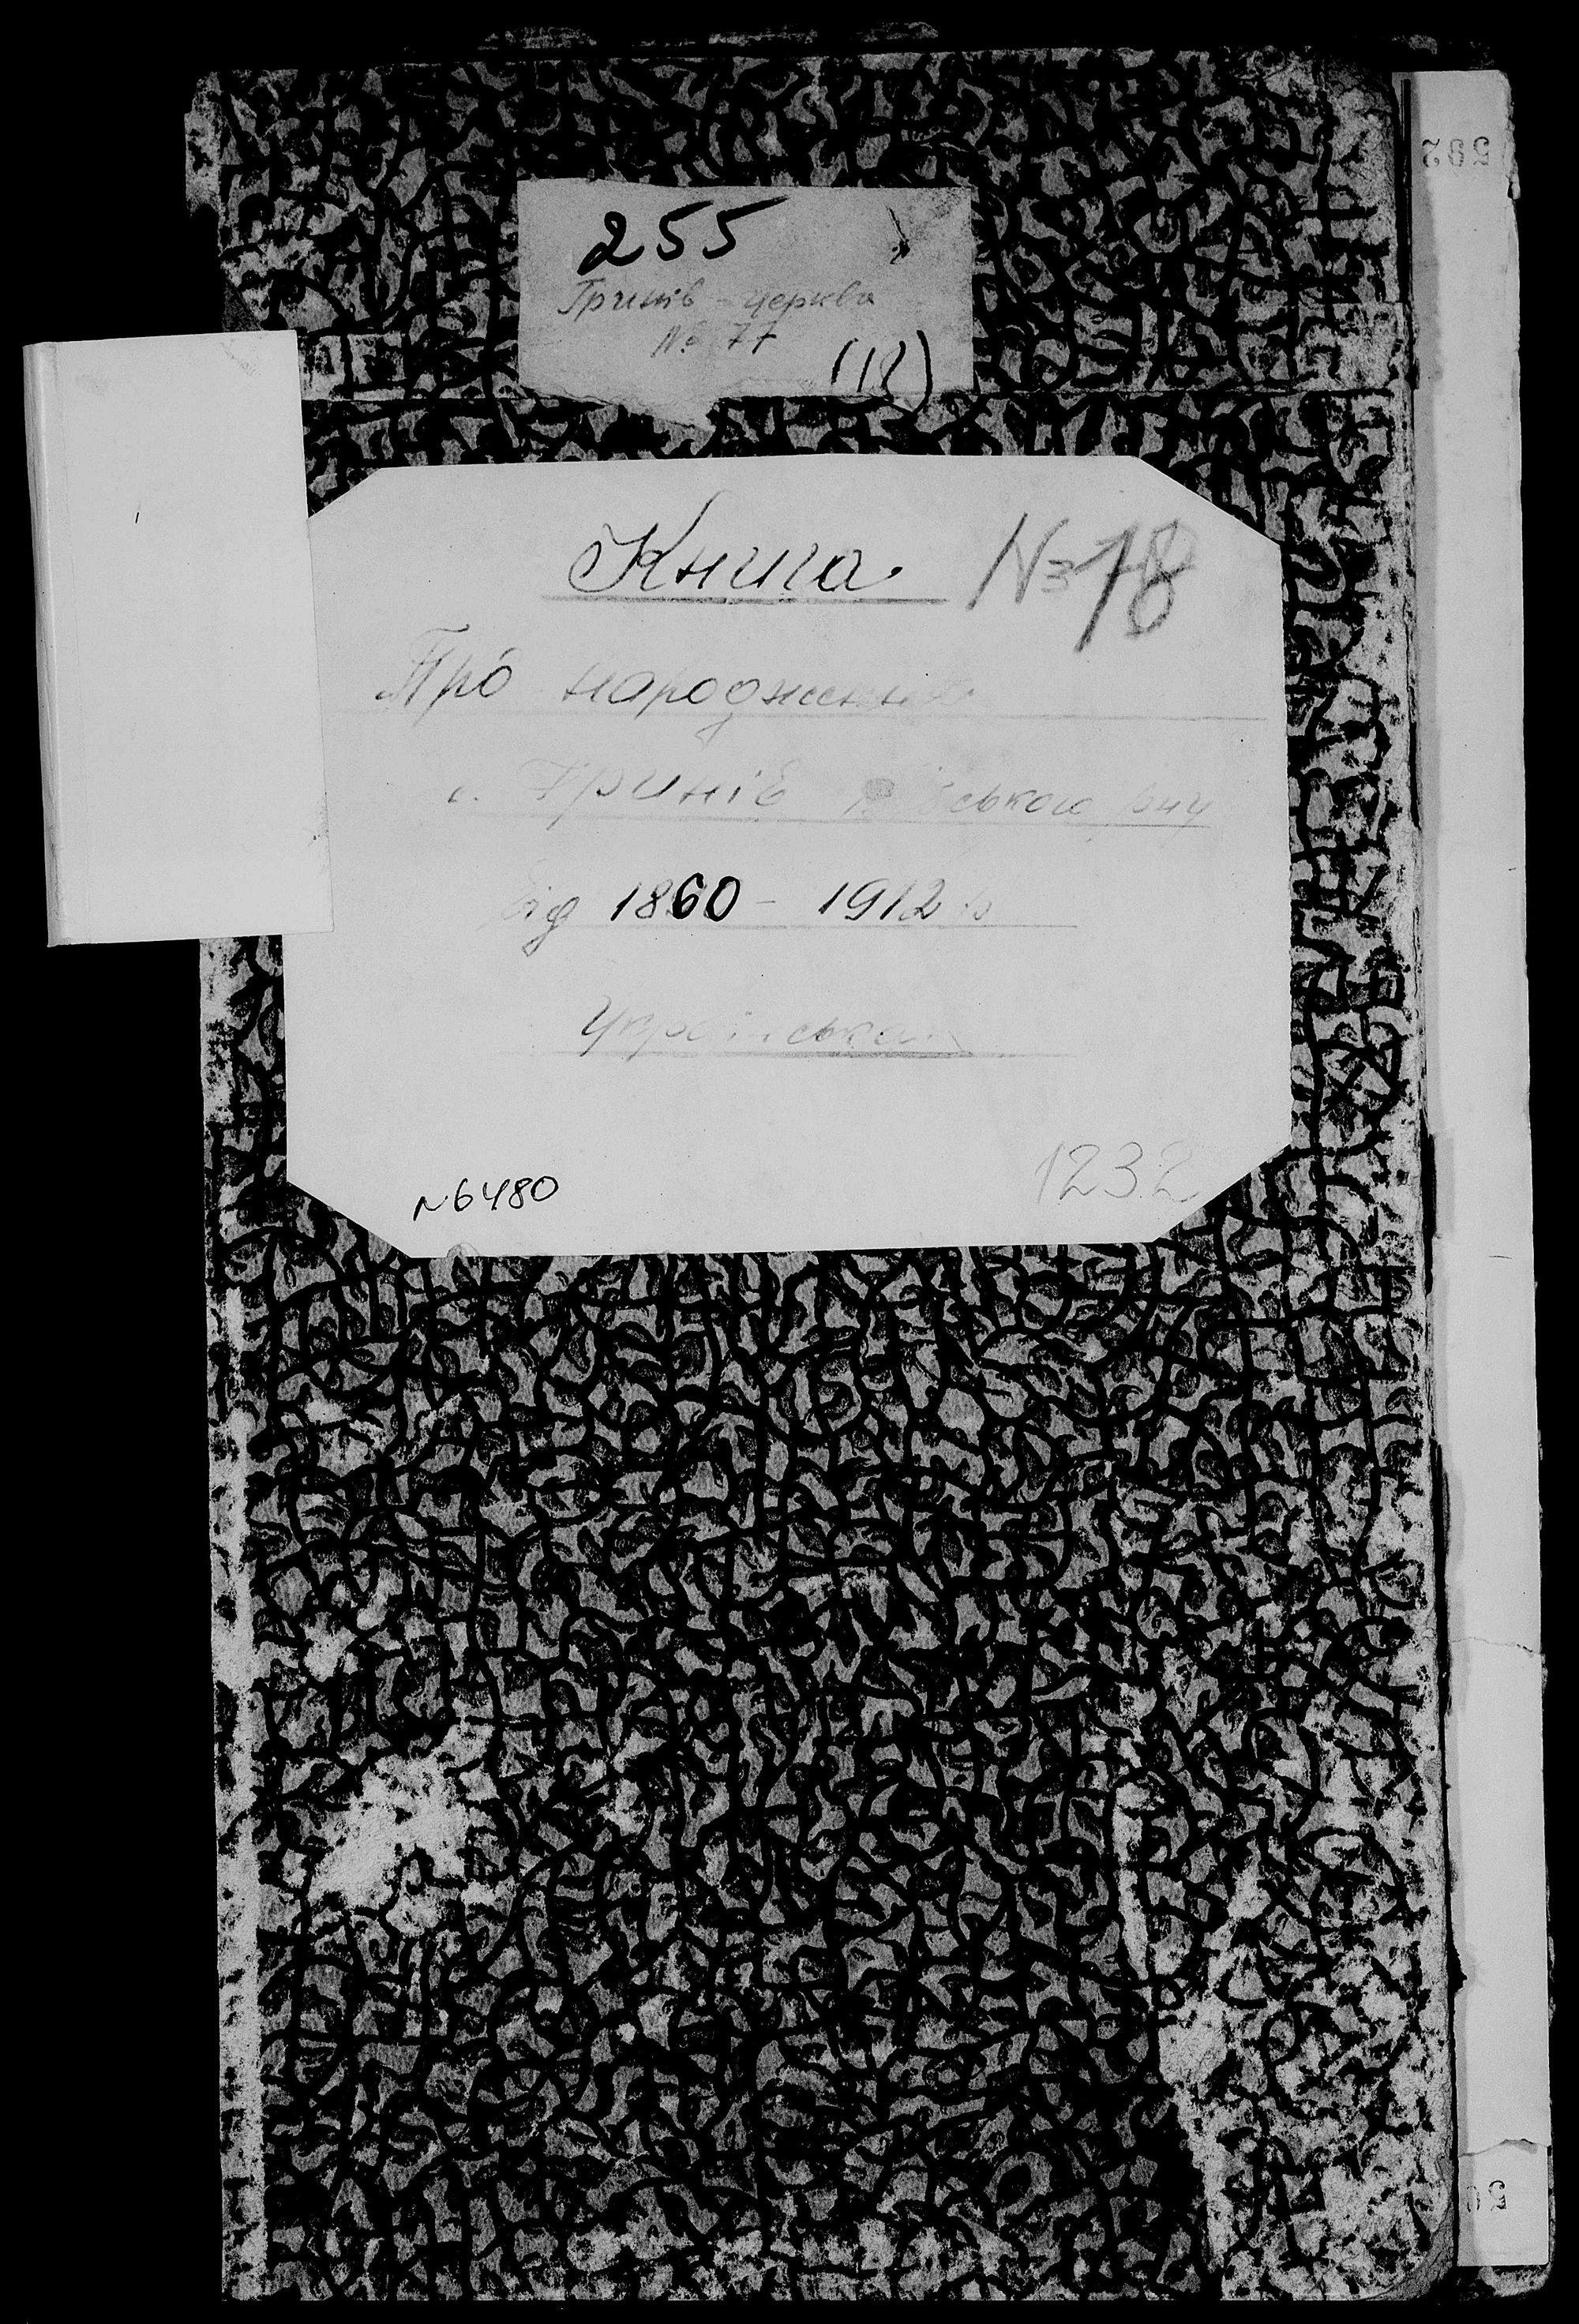 592
255
Гринів - церква
№ 77
(12)
Книга № 18
Про народження
с. Гринів р-ну
від 1860 - 1912 р
Українська
N 6480
1232